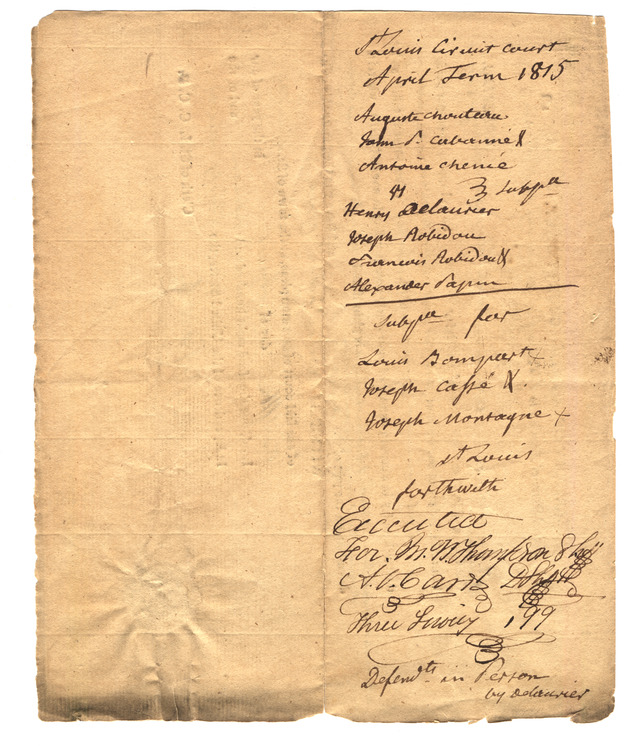 St Louis Circuit court
April Term 1815
Auguste chouteau
John P. Cabanné
Antoine chenié
vs } Subpa
Henry delaurier
Joseph Robidou
Francois Robidou
Alexander Papin
Subpa for
Louis Bompart x
Joseph Caffé
Joseph Montagne x
St Louis
forthwith
Executed
For. Thompson Shff
A. Carr D Shff
Three Serving 1,99
Defendts in Person
by delaurier